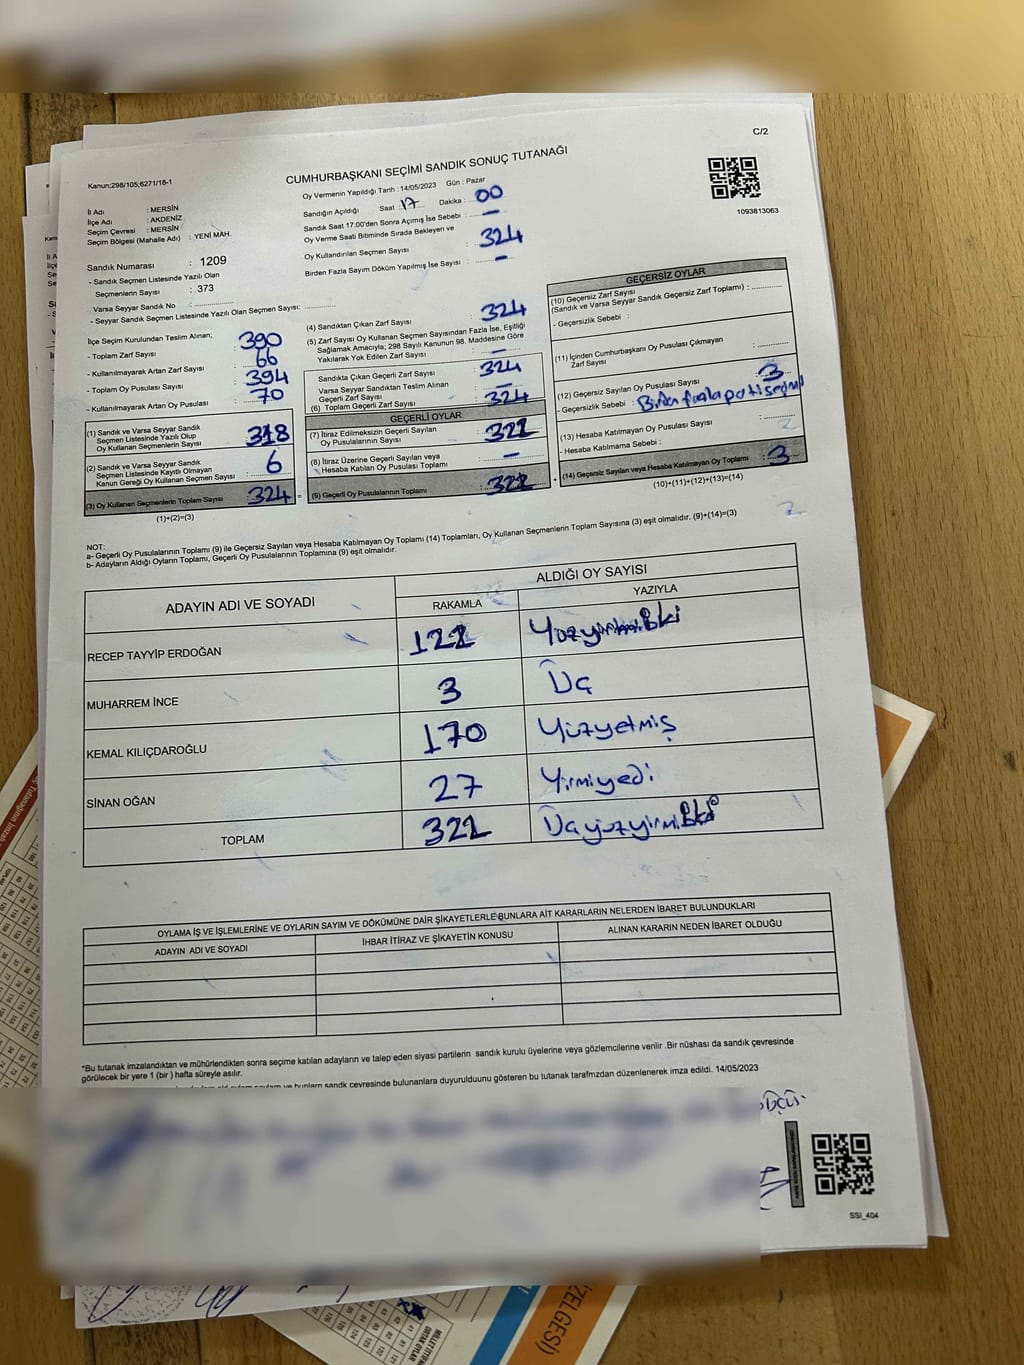 C/2
Kanun;298/105;6271/18-1
CUMHURBAŞKANI SEÇİMİ SANDIK SONUÇ TUTANAĞI
1093813063
İl Adı : MERSİN
İlçe Adı : AKDENİZ
Seçim Çevresi : MERSİN
Seçim Bölgesi (Mahalle Adı) : YENİ MAH.
Sandık Numarası : 1209
- Sandık Seçmen Listesinde Yazılı Olan
Seçmenlerin Sayısı : 373
Varsa Seyyar Sandık No :
- Seyyar Sandık Seçmen Listesinde Yazılı Olan Seçmen Sayısı:
Oy Vermenin Yapıldığı Tarih : 14/05/2023 Gün : Pazar
Sandığın Açıldığı Saat : 17 Dakika : 00
Sandık Saat 17:00'den Sonra Açımış İse Sebebi : –
Oy Verme Saati Bitiminde Sırada Bekleyen ve
Oy Kullandırılan Seçmen Sayısı : 324
Birden Fazla Sayım Döküm Yapılmış İse Sayısı : –
İlçe Seçim Kurulundan Teslim Alınan;
- Toplam Zarf Sayısı : 390
- Kullanılmayarak Artan Zarf Sayısı : 66
- Toplam Oy Pusulası Sayısı : 394
- Kullanılmayarak Artan Oy Pusulası : 70
(1) Sandık ve Varsa Seyyar Sandık
Seçmen Listesinde Yazılı Olup
Oy Kullanan Seçmenlerin Sayısı : 318
(2) Sandık ve Varsa Seyyar Sandık
Seçmen Listesinde Kayıtlı Olmayan
Kanun Gereği Oy Kullanan Seçmen Sayısı : 6
(3) Oy Kullanan Seçmenlerin Toplam Sayısı : 324 =
(1)+(2)=(3)
(4) Sandıktan Çıkan Zarf Sayısı : 324
(5) Zarf Sayısı Oy Kullanan Seçmen Sayısından Fazla İse, Eşitliği
Sağlamak Amacıyla; 298 Sayılı Kanunun 98. Maddesine Göre
Yakılarak Yok Edilen Zarf Sayısı : –
Sandıkta Çıkan Geçerli Zarf Sayısı : 324
Varsa Seyyar Sandıktan Teslim Alınan
Geçerli Zarf Sayısı : –
(6) Toplam Geçerli Zarf Sayısı : 324
GEÇERLİ OYLAR
(7) İtiraz Edilmeksizin Geçerli Sayılan
Oy Pusulalarının Sayısı : 322
(8) İtiraz Üzerine Geçerli Sayılan veya
Hesaba Katılan Oy Pusulası Toplamı : –
(9) Geçerli Oy Pusulalarının Toplamı : 322 +
GEÇERSİZ OYLAR
(10) Geçersiz Zarf Sayısı
(Sandık ve Varsa Seyyar Sandık Geçersiz Zarf Toplamı) :
- Geçersizlik Sebebi :
(11) İçinden Cumhurbaşkanı Oy Pusulası Çıkmayan
Zarf Sayısı :
(12) Geçersiz Sayılan Oy Pusulası Sayısı : 3
- Geçersizlik Sebebi : Birden fazla parti seçimi
(13) Hesaba Katılmayan Oy Pusulası Sayısı :
- Hesaba Katılmama Sebebi :
(14) Geçersiz Sayılan veya Hesaba Katılmayan Oy Toplamı : 3
(10)+(11)+(12)+(13)=(14)
NOT:
a- Geçerli Oy Pusulalarının Toplamı (9) ile Geçersiz Sayılan veya Hesaba Katılmayan Oy Toplamı (14) Toplamları, Oy Kullanan Seçmenlerin Toplam Sayısına (3) eşit olmalıdır. (9)+(14)=(3)
b- Adayların Aldığı Oyların Toplamı, Geçerli Oy Pusulalarının Toplamına (9) eşit olmalıdır.
ADAYIN ADI VE SOYADI
ALDIĞI OY SAYISI
RAKAMLA YAZIYLA
RECEP TAYYİP ERDOĞAN 122 Yüzyirmiİki
MUHARREM İNCE 3 Üç
KEMAL KILIÇDAROĞLU 170 Yüzyetmiş
SİNAN OĞAN 27 Yirmiyedi
TOPLAM 322 Üçyüzyirmiİki
OYLAMA İŞ VE İŞLEMLERİNE VE OYLARIN SAYIM VE DÖKÜMÜNE DAİR ŞİKAYETLERLE BUNLARA AİT KARARLARIN NELERDEN İBARET BULUNDUKLARI
ADAYIN ADI VE SOYADI İHBAR İTİRAZ VE ŞİKAYETİN KONUSU ALINAN KARARIN NEDEN İBARET OLDUĞU
*Bu tutanak imzalandıktan ve mühürlendikten sonra seçime katılan adayların ve talep eden siyasi partilerin sandık kurulu üyelerine veya gözlemcilerine verilir .Bir nüshası da sandık çevresinde
görülecek bir yere 1 (bir ) hafta süreyle asılır.
ve bunların sandık çevresinde bulunanlara duyurulduunu gösteren bu tutanak tarafımzdan düzenlenerek imza edildi. 14/05/2023
SSI_404
İZELGESİ)